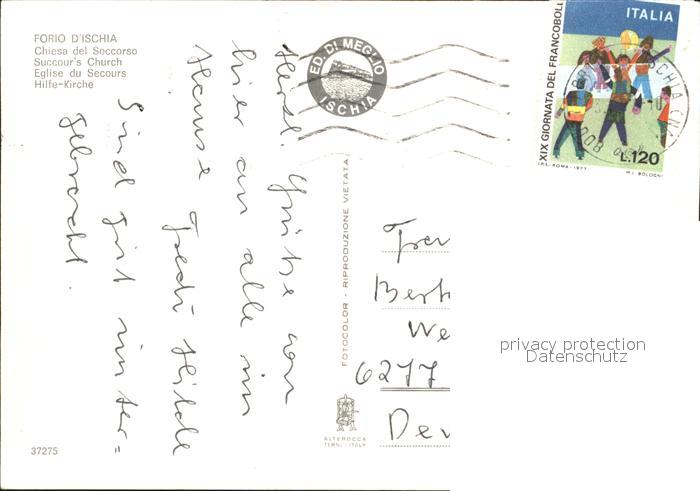 FORIO D'ISCHIA
Chiesa del Soccorso
Succour's Church
Eglise du Secours
Hilfe-Kirche
ED. DI MEGLIO
ISCHIA
ITALIA
XIX GIORNATA DEL FRANCOBOLLO
L.120
I.P.S.-ROMA-1977
M.I. BOLOGNI
ISCHIA
Herzl. Grüße von
hier an alle im
Hause
Fredi Hilde
Sind gut unter=
gebracht.
FOTOCOLOR - RIPRODUZIONE VIETATA
Bert
We
6277
De
privacy protection
Datenschutz
ALTEROCCA
TERNI - ITALY
37275